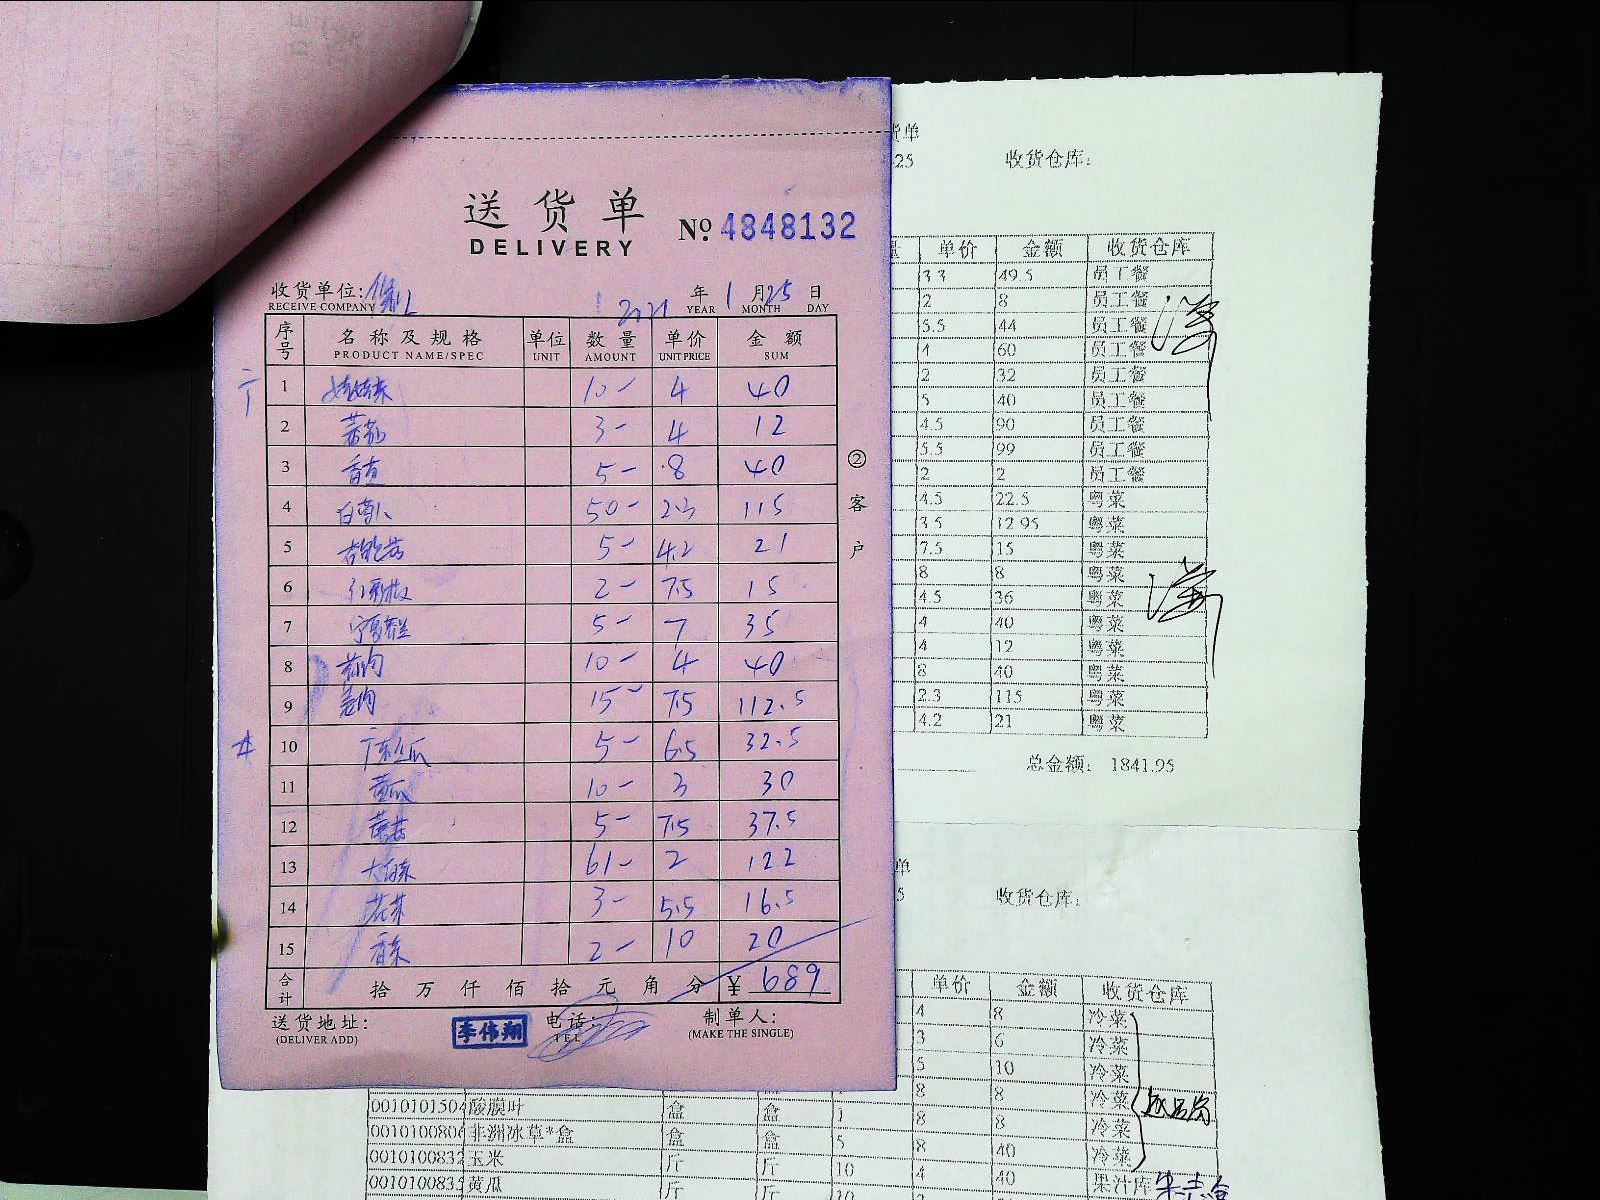 送货单
DELIVERY
№ 4848132
收货单位:
RECEIVE COMPANY
2021 年 1 月 25 日
YEAR MONTH DAY
序号 名称及规格 单位 数量 单价 金额
PRODUCT NAME/SPEC UNIT AMOUNT UNIT PRICE SUM
1 娃娃菜 10- 4 40
2 番茄 3- 4 12
3 5- 8 40
4 白萝卜 50- 2.3 115
5 杏鲍菇 5- 4.2 21
6 2- 7.5 15
7 宁夏菜兰 5- 7 35
8 10- 4 40
9 15- 7.5 112.5
10 5- 6.5 32.5
11 黄瓜 10- 3 30
12 蘑菇 5- 7.5 37.5
13 大白菜 61- 2 122
14 3- 5.5 16.5
15 香菜 2- 10 20
合计 拾 万 仟 佰 拾 元 角 分 ¥ 689
送货地址: 李伟翔 电话: 制单人:
(DELIVER ADD) TEL (MAKE THE SINGLE)
② 客户
货单
25 收货仓库:
量 单价 金额 收货仓库
3.3 49.5 员工餐
2 8 员工餐
5.5 44 员工餐
4 60 员工餐
2 32 员工餐
5 40 员工餐
4.5 90 员工餐
5.5 99 员工餐
2 2 员工餐
4.5 22.5 粤菜
3.5 12.95 粤菜
7.5 15 粤菜
8 8 粤菜
4.5 36 粤菜
4 40 粤菜
4 12 粤菜
8 40 粤菜
2.3 115 粤菜
4.2 21 粤菜
总金额: 1841.95
单
5 收货仓库:
单价 金额 收货仓库
4 8 冷菜
3 6 冷菜
5 10 冷菜
8 8 冷菜
001010150 酸膜叶 盒 盒 1 8 8 冷菜
001010080 非洲冰草*盒 盒 盒 5 8 40 冷菜
001010083 玉米 斤 斤 10 4 40 果汁库
001010083 黄瓜 斤 斤 10